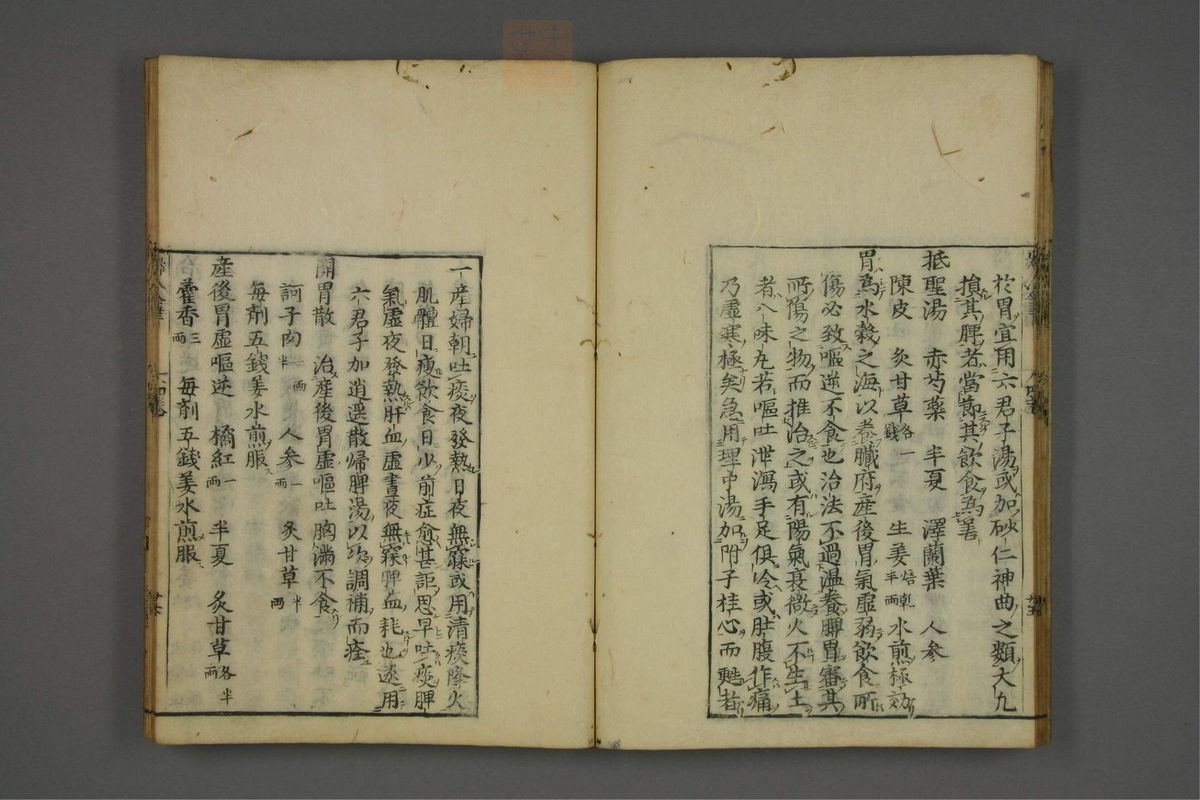 於胃宜用六君子湯或加砂仁神曲之類大凡
損其脾者當節其飲食爲善
抵聖湯　赤芍藥　半夏　澤蘭葉　人參
陳皮　炙甘草各一錢　生姜焙乾半兩　水煎極効
胃爲水穀之海以養臟府産後胃氣虛弱飲食所
傷必致嘔逆不食也治法不過温養脾胃審其
所傷之物而推治之或有陽氣衰微火不生土
者八味丸若嘔吐泄瀉手足俱冷或肚腹作痛
乃虛寒極矣急用理中湯加附子桂心而甦者
一産婦朝吐痰夜發熱日夜無寐或用清痰降火
肌體日瘦飲食日少前症愈甚詎思早吐痰脾
氣虛夜發熱肝血虛晝夜無寐脾血耗也遂用
六君子加逍遥散歸脾湯以次調補而痊
開胃散　治産後胃虛嘔吐胸滿不食
訶子肉一兩半　人參一兩　炙甘草半兩
每剤五錢姜水煎服
産後胃虛嘔逆　橘紅一兩　半夏　炙甘草各半兩
藿香三兩　每剤五錢姜水煎服